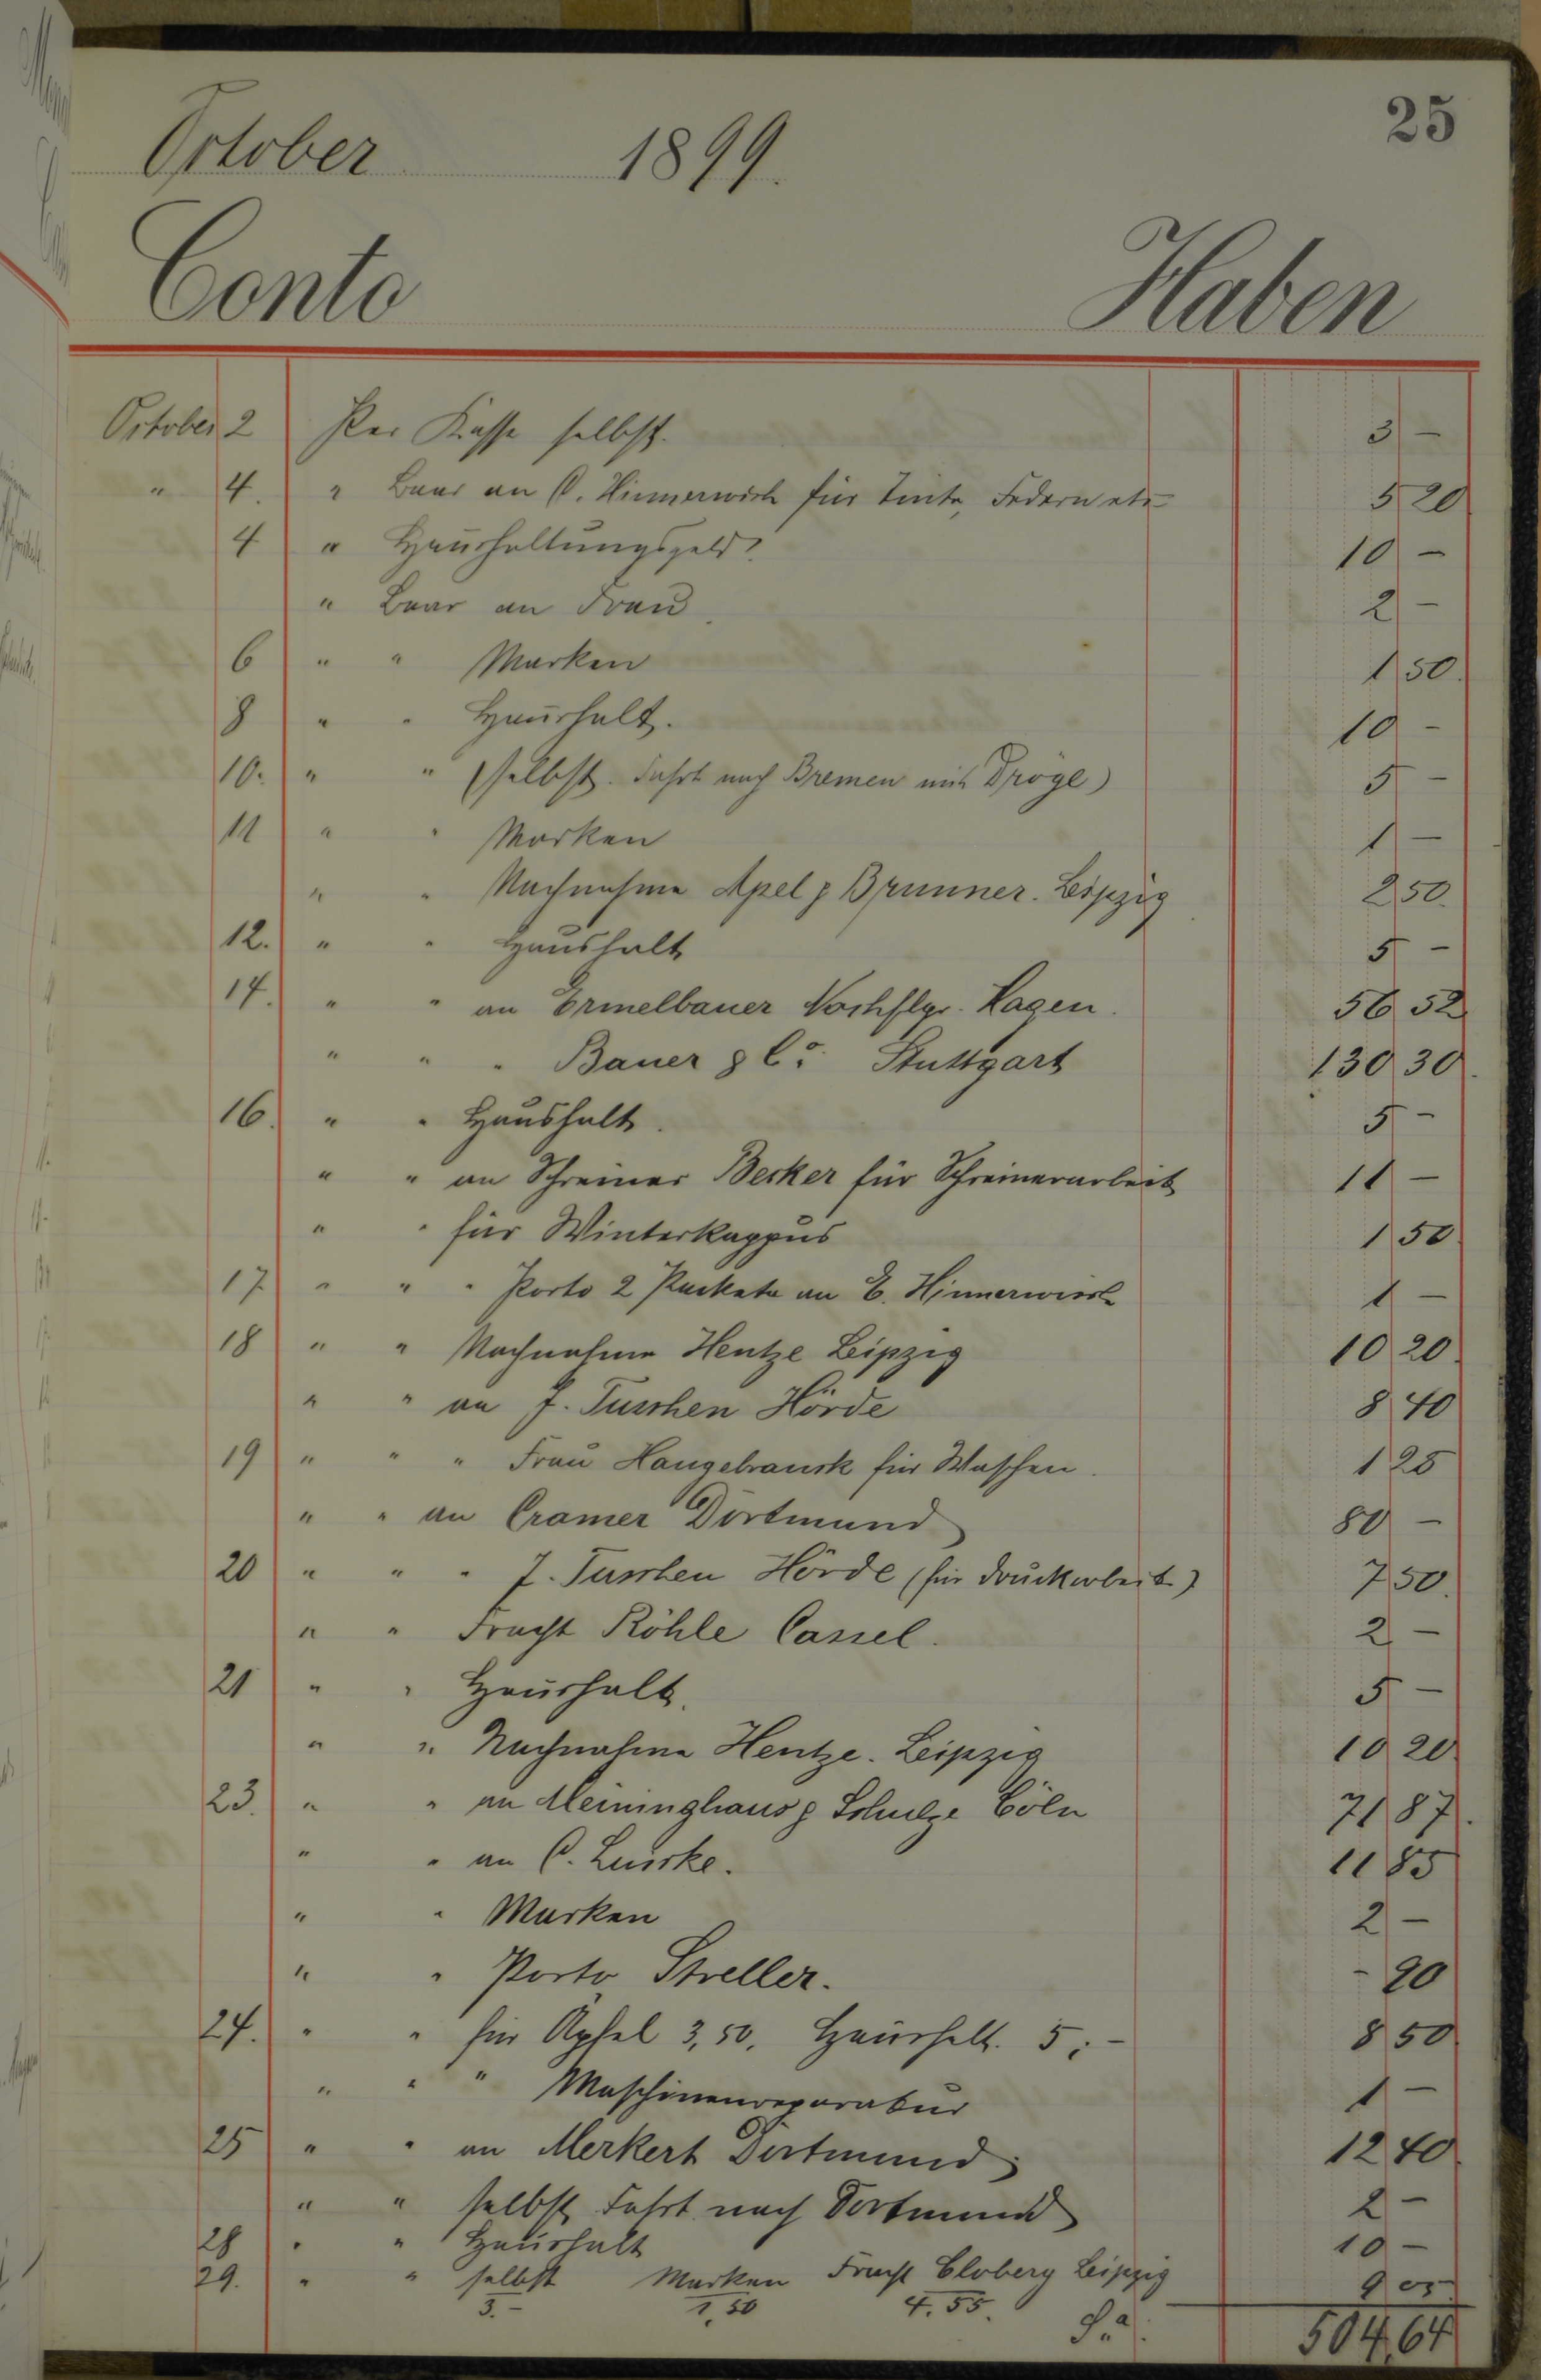 25
October 1899.
Conto Haben
October 2 Per Kasse selbst. 3 –
" 4. " Baar an C. Hinnerwisch für Tinte, Federn etc 5 20
4 " Haushaltungsgeld 10 –
" Baar an Frau 2 –
6 " " Marken 1 50.
8 " " Haushalt. 10 –
10. " " (selbst. Fahrt nach Bremen mit Dröge) 5 –
11 " " Marken 1 –
" " Nachnahme Apel & Brunner. Leipzig 2 50.
12. " " Haushalt 5 –
14. " " an Ermelbauer Nachflgr. Hagen. 56 52
" " " Bauer & Co. Stuttgart 130 30.
16. " " Haushalt. 5 –
" " an Schreiner Becker für Schreinerarbeit 11 –
" " für Winterkappus 1 50
17. " " " Porto 2 Packete an E. Hinnerwisch 1 –
18 " " Nachnahme Hentze Leipzig 10 20.
" " an J. Tuschen Hörde 8 40
19 " " " Frau Hangebrauck für Waschen. 1 25
" " an Cramer Dortmund 80 –
20 " " " J. Tuschen Hörde (für Druckarbeit) 7 50.
" " Fracht Röhle Cassel. 2 –
21 " " Haushalt. 5 –
" " Nachnahme Hentze. Leipzig 10 20
23. " " an Meininghaus & Schulze Cöln 71 87.
" " an C. Luecke. 11 85
" " Marken 2 –
" " Porto Streller. – 20
24. " " für Äpfel 3,50. Haushalt. 5.– 8 50
" " " Maschinenreparatur 1 –
25 " " an Merkert Dortmund 12 40
" " selbst Fahrt nach Dortmund 2 –
28 " " Haushalt 10 –
29. " " selbst Marken Fracht Cloberg Leipzig 9 05
3.– 1.50 4.55. Sa. 504,64